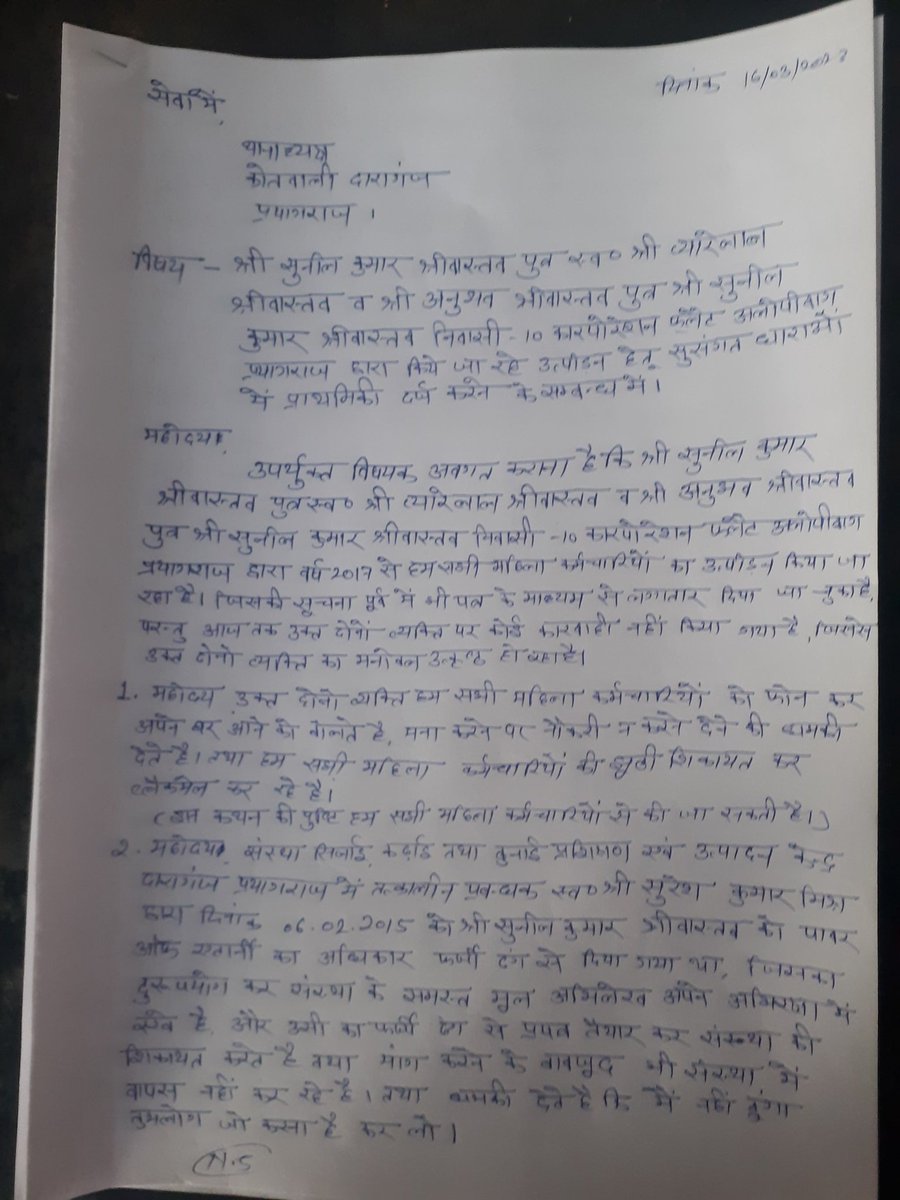 सेवा में,
दिनांक 16/03/202
थानाध्यक्ष
कोतवाली दारागंज
प्रयागराज ।
विषय - श्री सुनील कुमार श्रीवास्तव पुत्र स्व० श्री प्यारेलाल
श्रीवास्तव व श्री अनुभव श्रीवास्तव पुत्र श्री सुनील
कुमार श्रीवास्तव निवासी - 10 कारपोरेशन फ्लैट अलोपीबाग
प्रयागराज द्वारा किये जा रहे उत्पीडन हेतू सुसंगत धाराओं
में प्राथमिकी दर्ज करने के सम्बन्ध में।
महोदया,
उपर्युक्त विषयक अवगत कराना है कि श्री सुनील कुमार
श्रीवास्तव पुत्र स्व० श्री प्यारेलाल श्रीवास्तव व श्री अनुभव श्रीवास्तव
पुत्र श्री सुनील कुमार श्रीवास्तव निवासी -10 कारपोरेशन फ्लैट अलोपीबाग
प्रयागराज द्वारा वर्ष 2017 से हम सभी महिला कर्मचारियों का उत्पीडन किया जा
रहा है। जिसकी सूचना पूर्व में भी पत्र के माध्यम से लगातार दिया जा चुका है,
परन्तु आज तक उक्त दोनों व्यक्ति पर कोई कारवाही नहीं किया गया है, जिससे
उक्त दोनो व्यक्ति का मनोबल हो रहा है।
1. महोदय उक्त दोनो व्यक्ति हम सभी महिला कर्मचारियों को फोन कर
अपने घर आने को बोलते है, मना करने पर नौकरी न करने देने की धमकी
देते है। तथा हम सभी महिला कर्मचारियों की झूठी शिकायत कर
ब्लैकमेल कर रहे है।
(इस कथन की पुष्टि हम सभी महिला कर्मचारियों से की जा सकती है।)
2. महोदया, संस्था कताई तथा बुनाई प्रशिक्षण एवं उत्पादन केन्द्र
दारागंज प्रयागराज में तत्कालीन प्रबन्धक स्व० श्री सुरेश कुमार मिश्र
द्वारा दिनांक 06.02.2015 को श्री सुनील कुमार श्रीवास्तव को पावर
ऑफ एटार्नी का अधिकार फर्जी ढंग से दिया गया था, जिसका
दुरूपयोग कर संस्था के समस्त मूल अभिलेख अपने अभिरक्षा में
रखे है, और उसी का फर्जी ढंग से प्रपत्र तैयार कर संस्था की
शिकायत करते है तथा मांग करने के बावजूद भी संस्था में
वापस नहीं कर रहे है। तथा धमकी देते है कि मैं नहीं दूंगा
तुमलोग जो करना है कर लो।
N.S